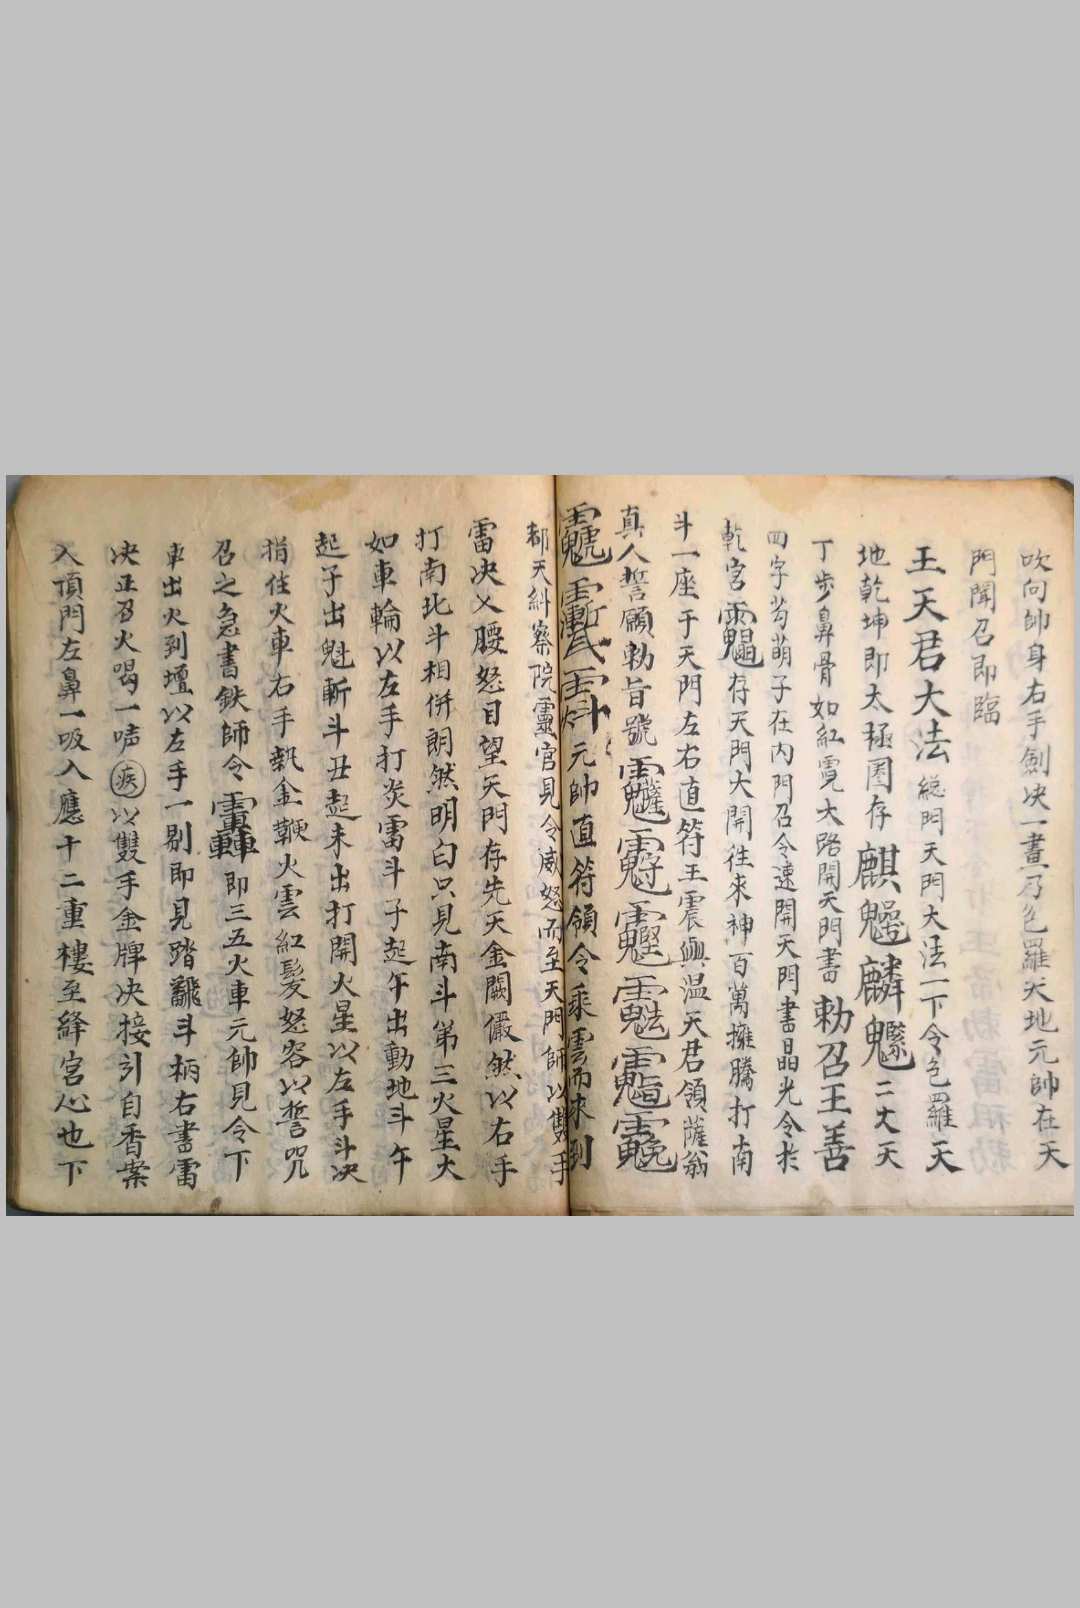 吹向帥身右手劍决一畫乃包羅天地元帥在天
門聞召即臨
王天君大法総門天門大法一下令包羅天
地乾坤即太極圏存麒麟二大天
丁步鼻骨如紅霓大路開天門書勅召王善
四字芶萌子在内門召令速開天門書晶光令於
乾宮存天門大開往來神百萬擁騰打南
斗一座于天門左右直符王震與温天君領薩翁
真人誓願勅旨號
元帥直符領令乘雲而來到
都天糾察院靈官見令威怒而至天門師以雙手
雷决乂腰怒目望天門存先天金闕儼然以右手
打南北斗相併朗然明白只見南斗第三火星大
如車輪以左手打炎雷斗子起午出動地斗午
起子出魁斬斗丑起未出打開火星以左手斗决
指住火車右手執金鞭火雲紅髪怒容以誓咒
召之急書鉄師令即三五火車元帥見令下
車出火到壇以左手一剔即見踏斗柄右書雷
决正召火喝一声疾以雙手金牌决接引自香案
入頂門左鼻一吸入應十二重樓至絳宮心也下